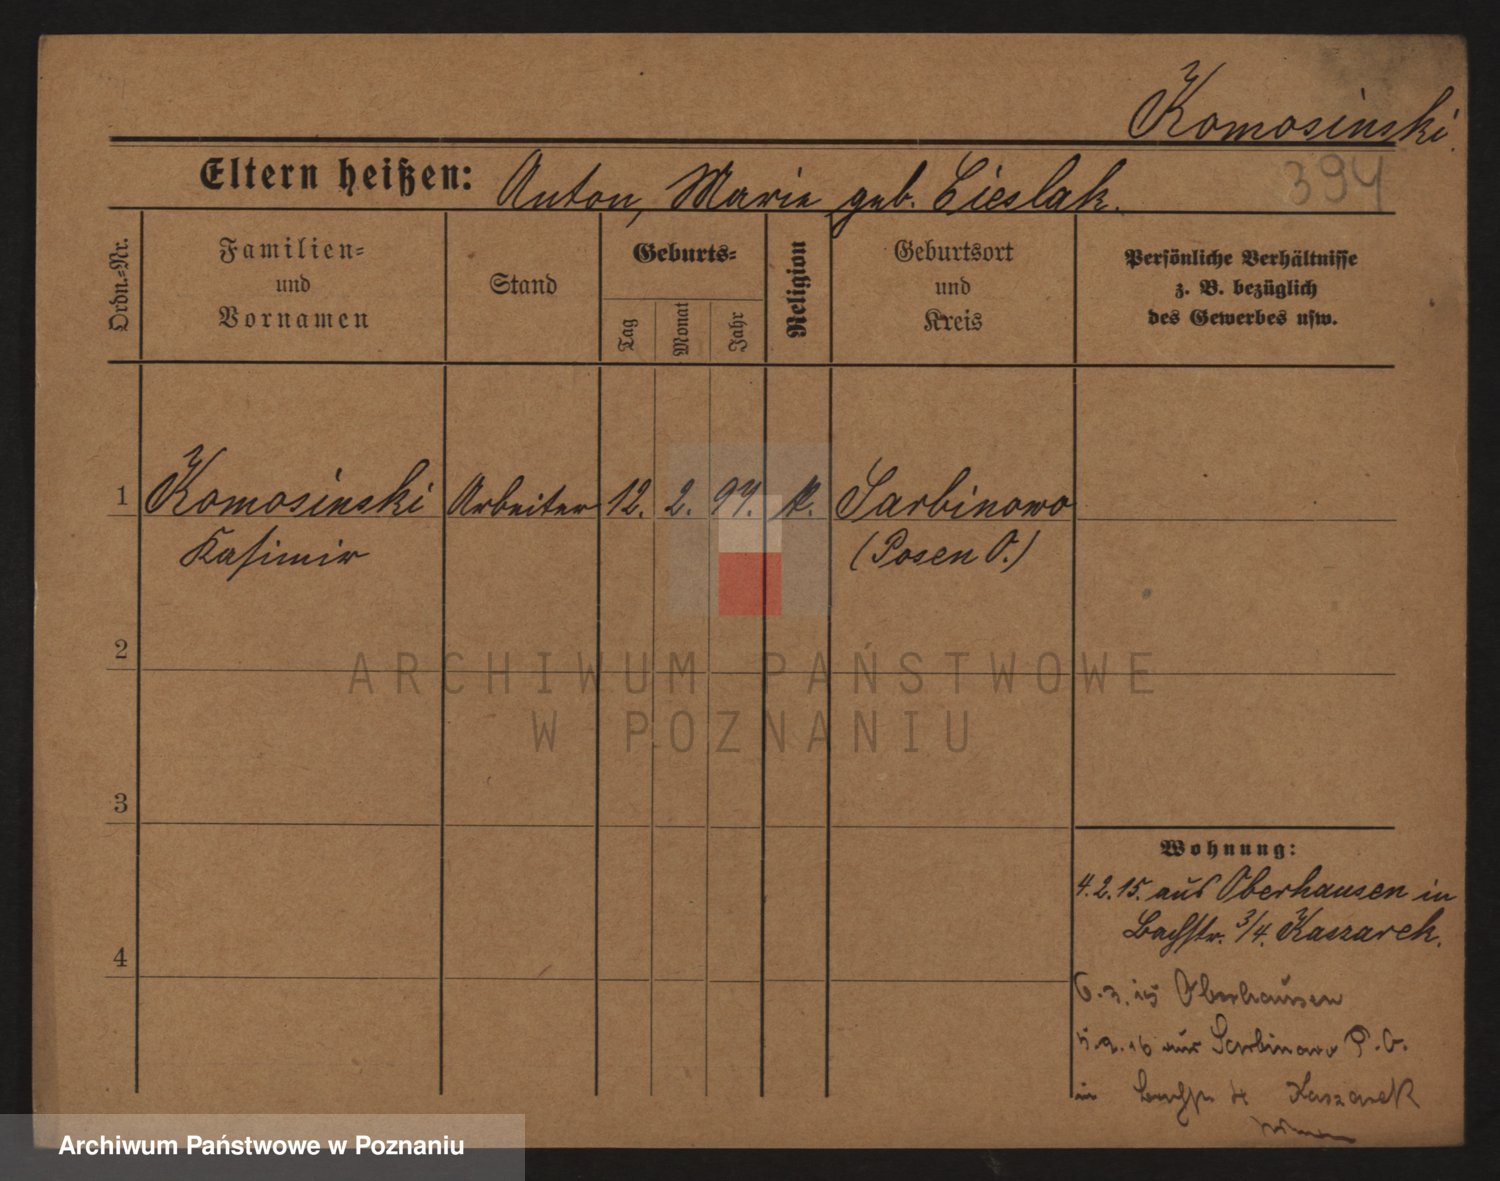 Komosinski.
394
Eltern heißen: Anton, Marie geb. Cieslak.
Ordn.-Nr.
Familien- und Vornamen
Stand
Geburts-
Tag
Monat
Jahr
Religion
Geburtsort und Kreis
Persönliche Verhältnisse
z. B. bezüglich
des Gewerbes usw.
1 Komosinski Arbeiter 12. 2. 97. k. Sarbinowo
Kasimir (Posen O.)
2
ARCHIWUM PAŃSTWOWE
W POZNANIU
3
Wohnung:
4.2.15. aus Oberhausen in
Bachstr. 3/4. Kaszarek.
4
6.3.15 Oberhausen
aus Sarbinowo P.O.
in Bachstr 4 Kaszarek
Archiwum Państwowe w Poznaniu